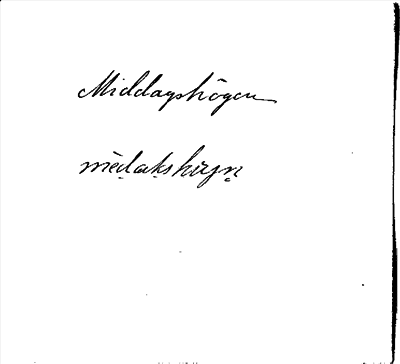 Middagshögen
mèd̥ak̥shøyn̥